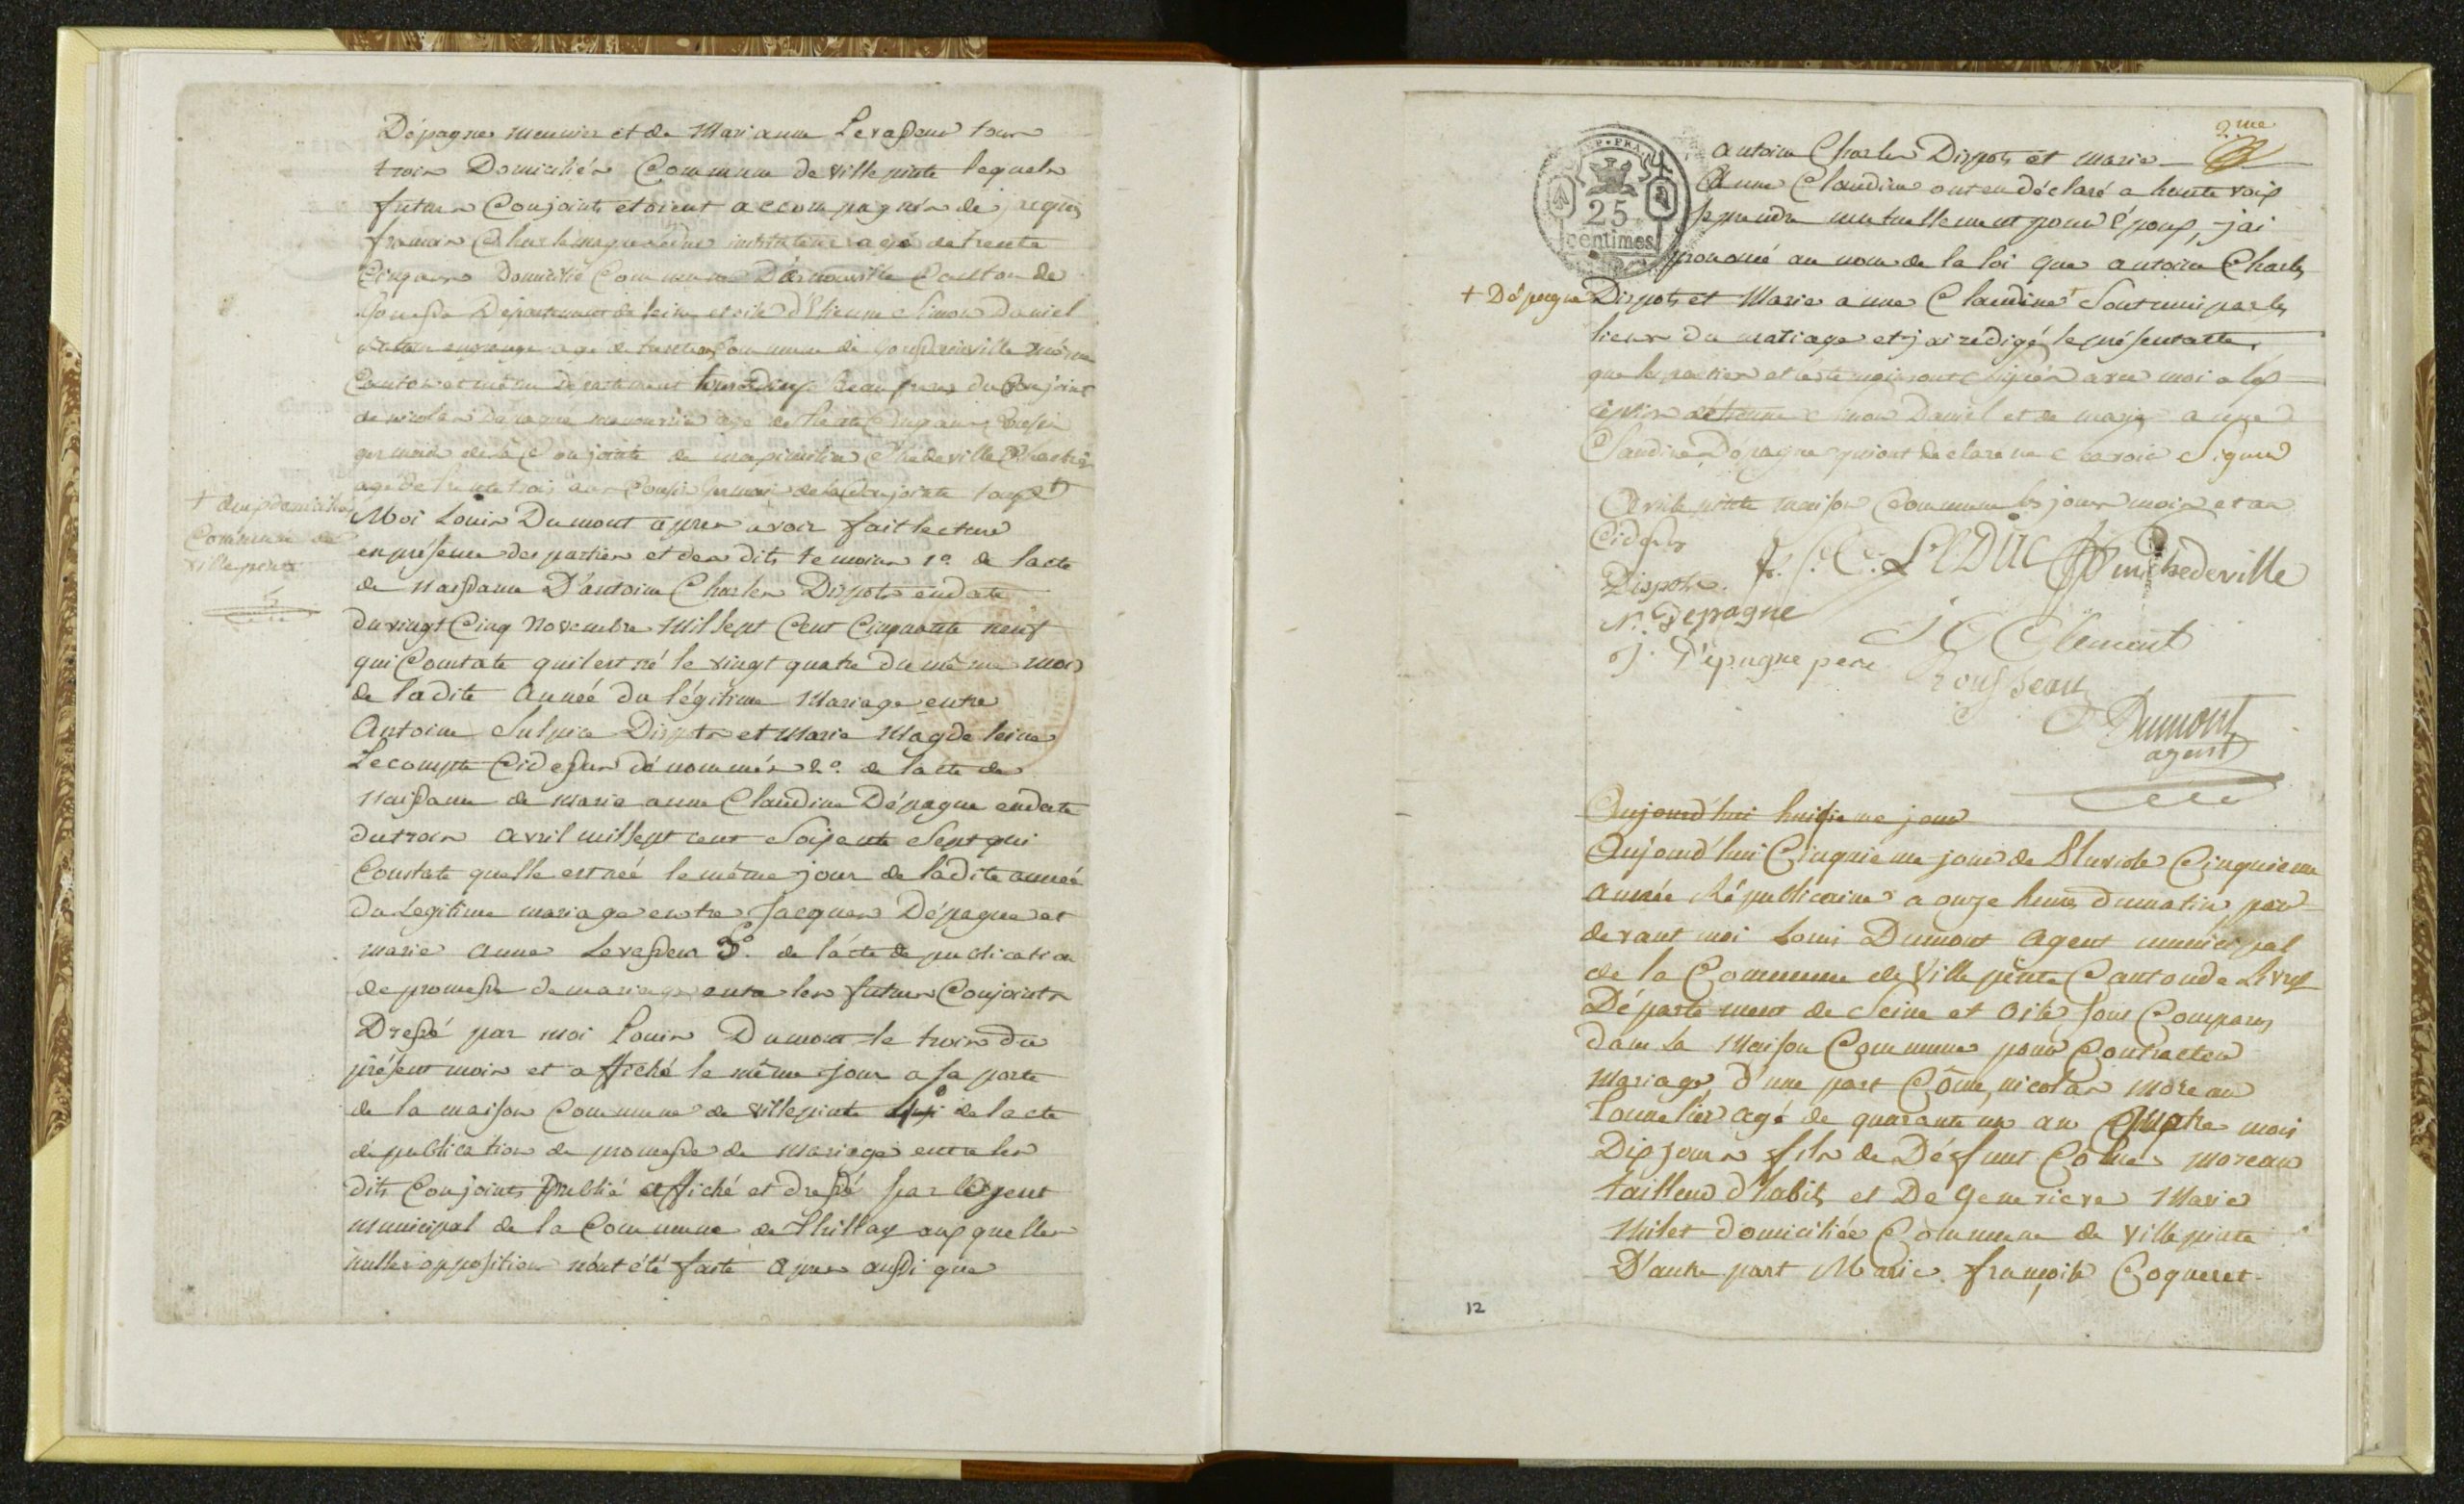 Dépagne meunier et de Marianne Levasseur tous
trois Domiciliés Commune de villepinte lequels
futurs Conjoints etoient accompagnés de jacques
francois Charlemagne instituteur agé de trente
Cinq ans Domicilié Commune D'arnouville Canton de
Gonesse Département de Seine et oise d'Etienne Simon Daniel
agé de trente Commune de Goussainville même
Canton et même Departement tous deux beau freres du Conjoint
de nicolas Depagne manouvrier agé de trente Cinq ans Cousin
germain de la Conjointe de maximilien Chedeville
agé de trente trois ans Cousin Germain de la Conjointe tous +
+ deux domiciliés
Commune de
villepinte
Moi Louis Dumont apres avoir fait lecture
en présence des parties et des dits temoins 1º. de lacte
de Naissance D'antoine Charles Dispots en date
du vingt Cinq Novembre Mil Sept Cent Cinquante neuf
qui Constate quil est né le vingt quatre du même mois
de ladite année du légitime Mariage entre
Antoine Sulpice Dispots et Marie Magdeleine
Lecompte Cidessus dénommés 2º. de lacte de
Naissance de Marie anne Claudine Dépagne en date
du trois avril mil Sept cent Soixante Sept qui
Constate quelle est née le même jour de ladite année
du Legitime mariage entre Jacques Dépagne et
marie anne Levasseur 3º. de lácte de publication
de promesse de mariage entre les futurs Conjoints
Dressé par moi Louis Dumont le trois du
présent mois et affiché le même jour a la porte
de la maison Commune de villepinte 4º de lacte
de publication de promesse de Mariage entre les
dits Conjoints Publié affiché et dressé par lagent
municipal de la Commune de Thillay auxquelles
nulles opposition nont été faite apres aussi que
2.me
REP. FRA.
25
centimes
antoine Charles Dispots et marie
Anne Claudine ont eu déclaré a haute voix
se prendre mutuellement pour Époux, j'ai
prononcé au nom de la loi que antoine Charles
+ Dépagne
Dispots et Marie anne Claudine + Sont unis par les
liens du mariage et j'ai rédigé le présent acte
que les parties et les temoins ont Signés avec moi a lex
ception détienne Simon Daniel et de marie anne
Claudine Dépagne qui ont déclaré ne Savoir Signer
A ville pinte maison Commune les jour mois et an
Cidessus
f. C. LEDUC
M Chedeville
Dispots.
N. Depagne
J C Clement
J. Dépagne pere
Rousseau
Dumont
agent
Aujourd'hui huitieme jour
Aujourd'hui Cinquieme jour de Pluviose Cinquieme
année Républicaine a onze heures du matin, par
devant moi Louis Dumont agent municipal
de la Commune de Ville pinte Canton de Livry
Département de Seine et Oise, Sont Comparus
dans la Maison Commune pour Contracter
Mariage, d'une part Côme, nicolas moreau
Tonnelier agé de quarante un an Quatre mois
Dix Jours fils de Défunt Côme moreau
tailleur d'habits et De Genevieve Marie
Milet domiciliée Commune de villepinte
D'autre part Marie françoise Coqueret
12